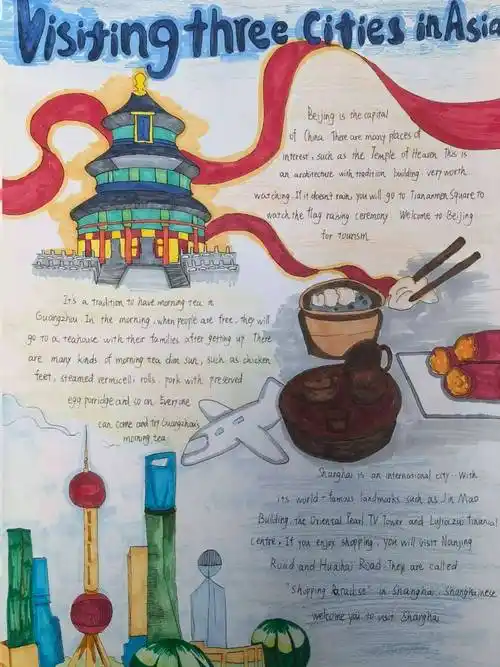 Visiting three Cities in Asia
Beijing is the capital
of China. There are many places of
interest, such as the Temple of Heaven. This is
an architecture with tradition building, very worth
watching. If it doesn't rain, you will go to Tiananmen Square to
watch the flag raising ceremony. Welcome to Beijing
for tourism.
It's a tradition to have morning tea in
Guangzhou. In the morning, when people are free, they will
go to a teahouse with their families after getting up. There
are many kinds of morning tea dim sun, such as chicken
feet, steamed vermicelli rolls, pork with preserved
egg porridge and so on. Everyone
can come and try Guangzhou's
morning tea.
Shanghai is an international city. With
its world-famous landmarks such as Jin Mao
Building, the Oriental Pearl TV Tower and Lujiazui Financial
Centre. If you enjoy shopping, you will visit Nanjing
Road and Huaihai Road. They are called
"Shopping Paradise" in Shanghai. Shanghainese
welcome you to visit Shanghai